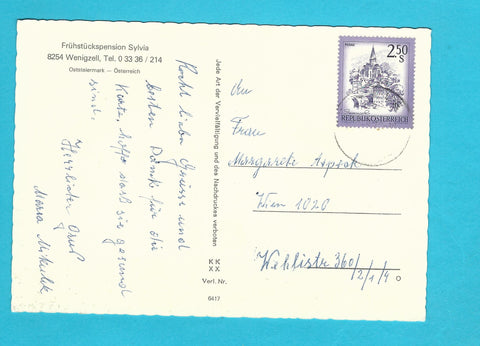 Frühstückspension Sylvia
8254 Wenigzell, Tel. 0 33 36 / 214
Oststeiermark – Österreich
Recht liebe Grüsse und
besten Dank für die
Karte, hoffe daß sie gesund
sind.
Herzlichst
Maria
Jede Art der Vervielfältigung und des Nachdruckes verboten
KK
XX
Verl. Nr.
6417
2.50
S
REPUBLIK ÖSTERREICH
An
Frau
Margarete
Wien 1020
Wehlistr 360/
2/1/9